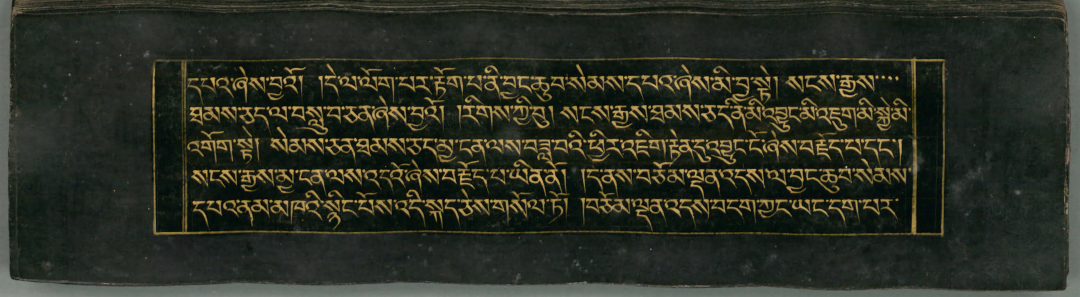 དཔའ་ཞེས་བྱའོ། །དེ་ལ་ལོག་པར་རྟོག་པ་ནི་བྱང་ཆུབ་སེམས་དཔའ་ཞེས་མི་བྱ་སྟེ། སངས་རྒྱས་
ཐམས་ཅད་ལ་བསླུ་བ་ཅན་ཞེས་བྱའོ། །རིགས་ཀྱི་བུ། སངས་རྒྱས་ཐམས་ཅད་ནི་མི་འབྱུང་མི་འཇུག་མི་སྐྱེ་མི་
འགོག་སྟེ། སེམས་ཅན་ཐམས་ཅད་མྱ་ངན་ལས་བཟླ་བའི་ཕྱིར་འཇིག་རྟེན་དུ་འབྱུང་ངོ་ཞེས་བརྗོད་པ་དང་།
སངས་རྒྱས་མྱ་ངན་ལས་འདའོ་ཞེས་བརྗོད་པ་ཡིན་ནོ། །དེ་ནས་བཅོམ་ལྡན་འདས་ལ་བྱང་ཆུབ་སེམས་
དཔའ་ནམ་མཁའི་སྙིང་པོས་འདི་སྐད་ཅེས་གསོལ་ཏོ། །བཅོམ་ལྡན་འདས་བདག་ཀྱང་ཡང་དག་པར་